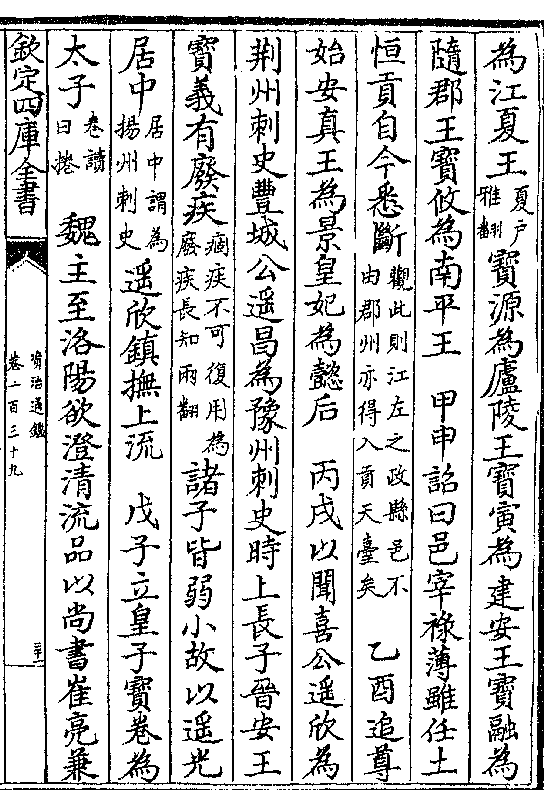 為江夏王夏户雅翻寳源為廬陵王寳寅為建安王寳融為
隨郡王寳攸為南平王　甲申詔曰邑宰禄薄雖任土
恒貢自今悉斷觀此則江左之政縣邑不由郡州亦得入貢天臺矣　乙酉追尊
始安真王為景皇妃為懿后　丙戌以聞喜公遥欣為
荆州刺史豐城公遥昌為豫州刺史時上長子晉安王
寳義有廢疾痼疾不可復用為廢疾長知兩翻諸子皆弱小故以遥光
居中居中謂為揚州刺史遥欣鎮撫上流　戊子立皇子寳卷為
太子卷讀曰捲　魏主至洛陽欲澄清流品以尚書崔亮兼
欽定四庫全書
資治通鑑
卷一百三十九